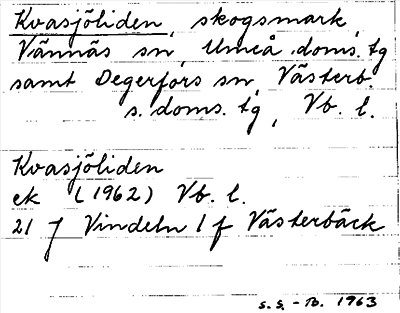 Kvasjöliden, skogsmark,
Vännäs sn, Umeå doms. tg
samt Degerfors sn, Västerb.
s. doms. tg, Vb. l.
Kvasjöliden
ek (1962) Vb. l.
21 J Vindeln 1 f Västerbäck
s. s. - B. 1963